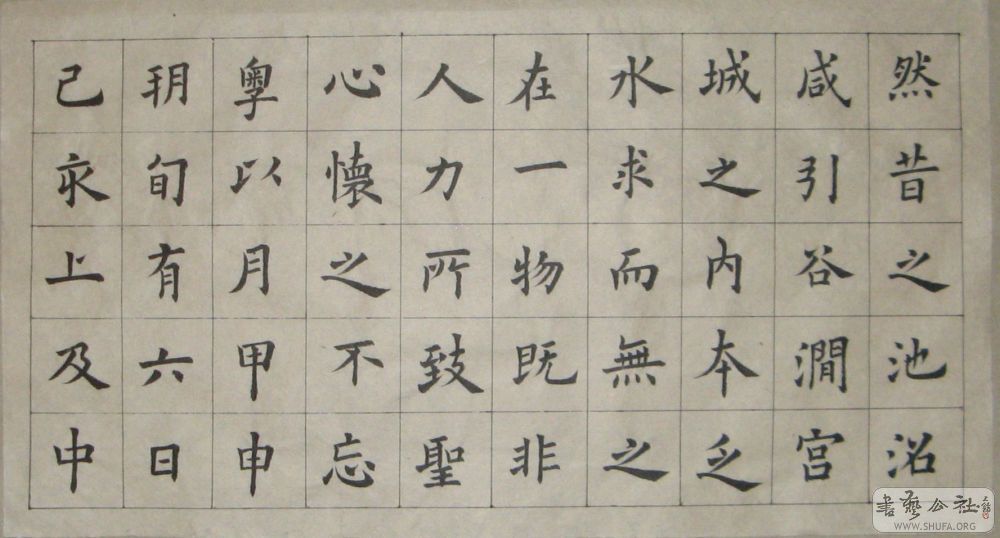 然昔之池沼
咸引谷澗宮
城之内本乏
水求而無之
在一物既非
人力所致聖
心懷之不忘
粵以月甲申
朔旬有六日
己亥上及中
書藝公社
WWW.SHUFA.ORG